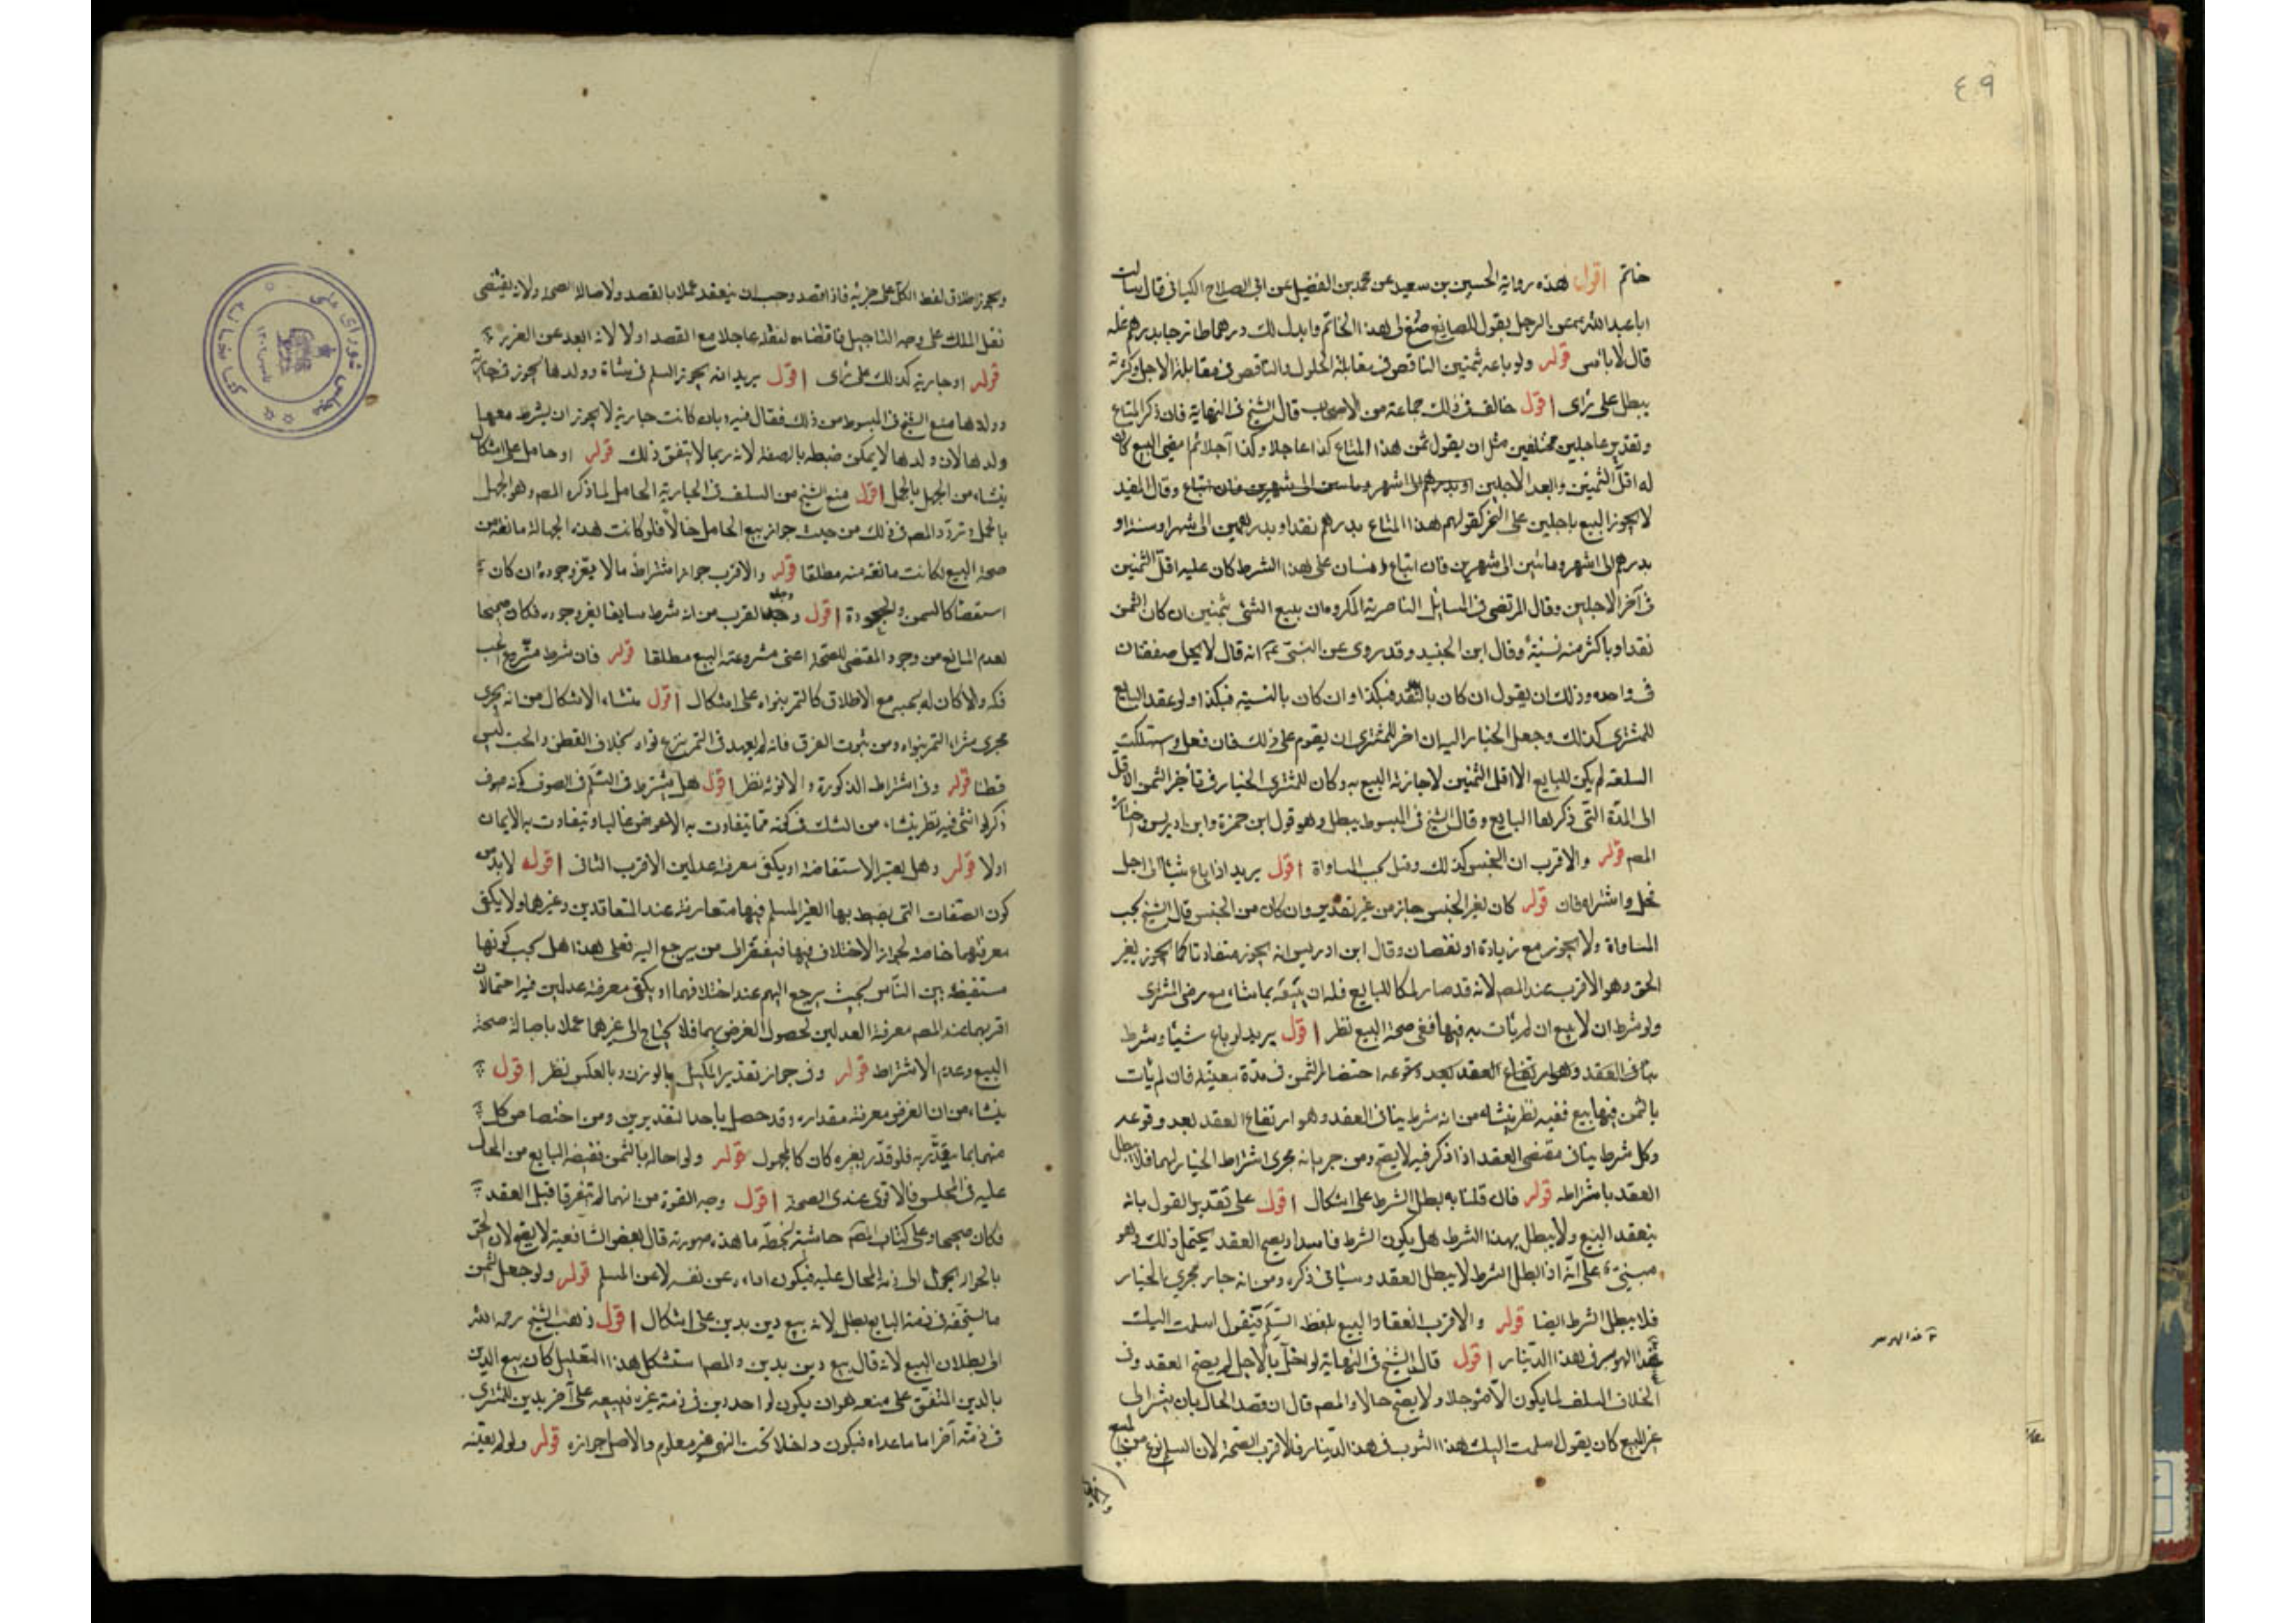 ٤٩
خاتم اقول هذه رواية الحسين بن سعيد عن محمد بن الفضيل عن ابى الصلاح الكنانى قال سالت
ابا عبد الله ع عن الرجل يقول للصايغ صغ لى هذا الخاتم وابدل لك درهما طازجا بدرهم غله
قال لا باس قوله ولو باعه بثمنين الناقص فى مقابلة الحلول والناقص فى مقابلة الاجل وكثرته
يبطل على راى اقول خالف فى ذلك جماعة من الاصحاب قال الشيخ فى النهاية فان ذكر المتاع
ونقدين عاجلين مختلفين مثل ان يقول ثمن هذا المتاع كذا عاجلا وكذا آجلا ثم مضى البيع كان
له اقل الثمنين وابعد الاجلين او بدرهم الى اشهر وقال المفيد
لا يجوز البيع باجلين على التخير كقولهم هذا المتاع بدرهم نقدا وبدرهمين الى شهر او سنة او
بدرهم الى اشهر ومائتين الى شهرين فان ابتاع انسان على هذا الشرط كان عليه اقل الثمنين
فى آخر الاجلين وقال المرتضى فى المسائل الناصرية المكروه ان يبيع الشئ بثمنين ان كان الثمن
نقدا وباكثر منه نسيئة وقال ابن الجنيد وقد روى عن النبى انه قال لا يحل صفقتان
فى واحده وذلك ان يقول ان كان بالنقد فبكذا وان كان بالنسية فبكذا ولو عقد البايع
للمشترى كذلك وجعل الخيار اليه ان اخر للمشترى ان يقوم على ذلك فان فعل وستهلكت
السلعة لم يكن للبايع الا اقل الثمنين لاجازته البيع به وكان للمشترى الخيار فى تأخر الثمن الاقل
الى المدة التى ذكرها البايع وقال الشيخ فى المبسوط يبطل وهو قول ابن حمزة وابن ادريس اختاره
المص قوله والاقرب ان الجنس كذلك وقيل يجب المساواة اقول يريد اذا باع شيئا الى اجل
فحل واشتراه فان قوله كان بغير الجنس جاز من غير تقدير وان كان من الجنس قال الشيخ يجب
المساواة ولا يجوز مع زيادة او نقصان وقال ابن ادريس انه يجوز متفاوتا كما يجوز بغير
الحق وهو الاقرب عند المص لانه قد صار ملكا للبايع فله ان يبيعه بما شاء مع رضى المشترى
ولو شرط ان لا بيع ان لم يأت به فيها ففى صحة البيع نظر اقول يريد لو باع شيئا وشرط
ينافى العقد وهو ارتفاع العقد بعد وقوعه احتضار الثمن فى مدة معينة فان لم يأت
بالثمن فيها بيع ففيه نظر ينشاء من انه شرط ينافى العقد وهو ارتفاع العقد بعد وقوعه
وكل شرط ينافى مقتضى العقد اذا ذكر فيه لا يصح ومن جريانه مجرى اشتراط الخيار لهما فلا يبطل
العقد باشتراطه قوله فان قلنا به بطل الشرط على اشكال اقول على تقدير القول بانه
ينعقد البيع ولا يبطل بهذا الشرط هل يكون الشرط فاسدا ويصح العقد يحتمل ذلك وهو
مبنى على انه اذا بطل الشرط لا يبطل العقد وسيأتى ذكره ومن انه جار مجرى الخيار
فلا يبطل الشرط ايضا قوله والاقرب انعقاد البيع بلفظ السلم فيقول اسلمت اليك
هذا الثوب فى هذا الدينار اقول قال الشيخ فى النهاية لو اخل بالاجل لم يصح العقد وفى
الخلاف السلف لا يكون الا مؤجلا ولا يصح حالا والمص قال ان قصد الحال بان يشير الى
غير البيع كان يقول اسلمت اليك هذا الثوب فى هذا الدينار فالاقرب الصحة لان السلم نوع من البيع
ويجوز اطلاق لفظ الكل على جزئيه فاذا قصد وجب ان ينعقد عملا بالقصد ولاصالة الصحة ولانه يقتضى
نقل الملك على وجه التاجيل فاقتضاءه لنقله عاجلا مع القصد اولا لانه ابعد عن الغرر
قوله او جارية كذلك على راى اقول يريد انه يجوز السلم فى شاة وولدها ويجوز فى جارية
وولدها منع الشيخ فى المبسوط من ذلك فقال فيه وان كانت جارية لا يجوز ان يشرط معها
ولدها لان ولدها لا يمكن ضبطه بالصفة لانه ربما لا يتفق ذلك قوله او حامل على اشكال
ينشاء من الجهل بالحمل اقول منع الشيخ من السلف فى الجارية الحامل لما ذكره المص وهو الجهل
بالحمل وتردد المص فى ذلك من حيث جواز بيع الحامل حالا فلو كانت هذه الجهالة مانعة من
صحة البيع لكانت مانعة منه مطلقا قوله والاقرب جواز اشتراط ما لا يعز وجوده ان كان
استقصاء كالسمن والجودة اقول وجه القرب من انه شرط سايغا لغير وجوده فكان صحيحا
لعدم المانع من وجود المقتضى للصحة اعنى مشروعية البيع مطلقا قوله فان شرط منزوع الحب
فله والا كان له بحبه مع الاطلاق كالتمر بنواه على اشكال اقول منشاء الاشكال من انه يجرى
مجرى شراء التمر بنواه ومن ثبوت الفرق فانه لم يعهد فى التمر بنزع نواه بخلاف القطن والحب ليس
قطنا قوله وفى اشتراط الذكورة والانوثة نظر اقول هل يشترط فى السلم فى الصوف كونه صوف
ذكر او انثى فيه نظر ينشاء من الشك فى كونه مما يتفاوت به الاعواض غالبا ويتفاوت به الايمان
اولا قوله وهل يعتبر الاستفاضة او يكفى معرفة عدلين الاقرب الثانى اقوله لا بد من
كون الصفات التى يضبط بها الغير المسلم فيها متعارفة عند المتعاقدين وغيرهما ولا يكفى
معرفتهما خاصة لجواز الاختلاف فيها فيفتقر الى من يرجع اليه فعلى هذا هل يجب كونها
مستفيضة بين الناس بحيث يرجع اليهم عند اختلافهما او يكفى معرفة عدلين فيه احتمالان
اقربهما عند المص معرفة العدلين لحصول الغرض بهما فلا يحتاج الى غيرهما عملا باصالة صحة
البيع وعدم الاشتراط قوله وفى جواز تقدير المكيل بالوزن وبالعكس نظر اقول
ينشاء من ان الغرض معرفة مقداره وقد حصل باحد التقديرين ومن اختصاص كل
منهما بما يقدر به فلو قدر بغيره كان كالمجهول قوله ولو احاله بالثمن فقبضه البايع من المحال
عليه فى المجلس فالاقوى عندى الصحة اقول وجه القوة من انهما لم يتفرقا قبل العقد
فكان صحيحا وعلى كتاب المص حاشية بخطه ما هذه صورته قال بعض الشافعية لا يصح لان الحق
بالحوالة يحول الى ذمة المحال عليه فيكون اداءه عن نفسه لا عن المسلم قوله ولو جعل الثمن
ما يستحقه فى ذمة البايع بطل لانه بيع دين بدين على اشكال اقول ذهب الشيخ رحمه الله
الى بطلان البيع لانه قال بيع دين بدين والمص استشكل هذا التعليل كأن بيع الدين
بالدين المتفق على منعه هو ان يكون لواحد دين فى ذمة غيره فيبيعه على آخر بدين للمشترى
فى ذمة آخر اما ما عداه فيكون داخلا تحت النهى غير معلوم والاصل جوازه قوله ولو لم يعينه